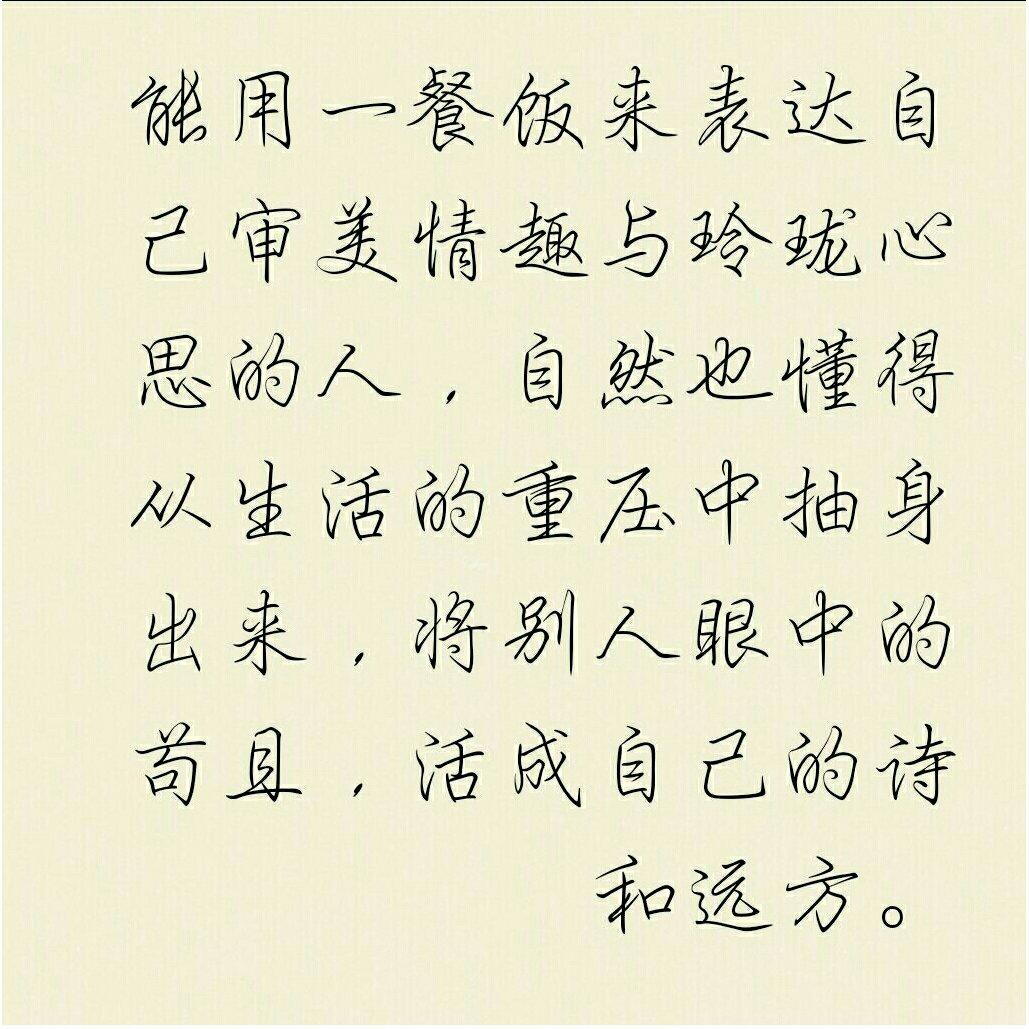 能用一餐饭来表达自
己审美情趣与玲珑心
思的人，自然也懂得
从生活的重压中抽身
出来，将别人眼中的
苟且，活成自己的诗
和远方。